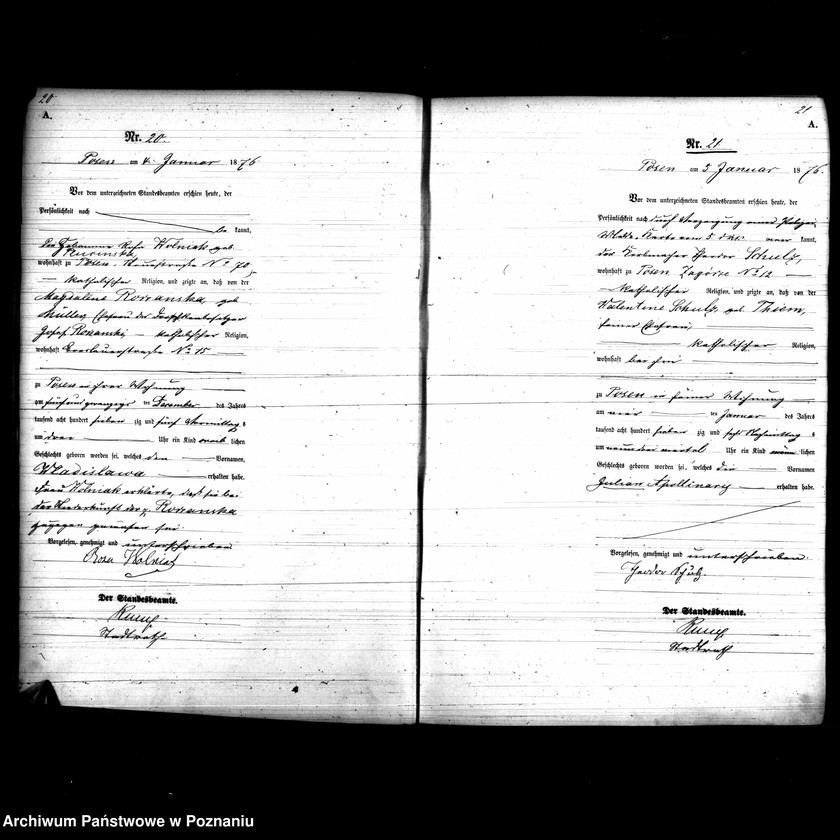 20
A.
Nr. 20.
Posen am 4. Januar 1876
Vor dem unterzeichneten Standesbeamten erschien heute, der
Persönlichkeit nach
be kannt,
Wolniak geb.
Rucinska,
wohnhaft zu Posen, No 70,
katholischer Religion, und zeigte an, daß von der
Magdalena Rozanska, geb.
Müller, Ehefrau des
Josef Rozanski, katholischer Religion,
wohnhaft Breslauerstraße No 15
zu Posen in ihrer Wohnung
am fünfundzwanzigs ten Dezember des Jahres
tausend acht hundert sieben zig und fünf Vormittags
um drei Uhr ein Kind weib lichen
Geschlechts geboren worden sei, welches den Vornamen
Wladislawa erhalten habe.
Frau Wolniak erklärte, daß sie bei
der Niederkunft der p. Rozanska
zugegen gewesen sei.
Vorgelesen, genehmigt und unterschrieben
Rosa Wolniak
Der Standesbeamte.
Stadtrath
21
A.
Nr. 21
Posen am 5 Januar 1876.
Vor dem unterzeichneten Standesbeamten erschien heute, der
Persönlichkeit nach durch
Karte vom 5 kannt,
der Korbmacher Theodor Schulz,
wohnhaft zu Posen Zagórze No 12
katholischer Religion, und zeigte an, daß von der
Valentine Schulz geb. Thiem,
seiner Ehefrau,
katholischer Religion,
wohnhaft bei ihm
zu Posen in seiner Wohnung
am vier ten Januar des Jahres
tausend acht hundert sieben zig und sechs Nachmittags
um Uhr ein Kind männ lichen
Geschlechts geboren worden sei, welches die Vornamen
Julian Apollinary erhalten habe.
Vorgelesen, genehmigt und unterschrieben.
Theodor Schulz.
Der Standesbeamte.
Stadtrath
Archiwum Państwowe w Poznaniu